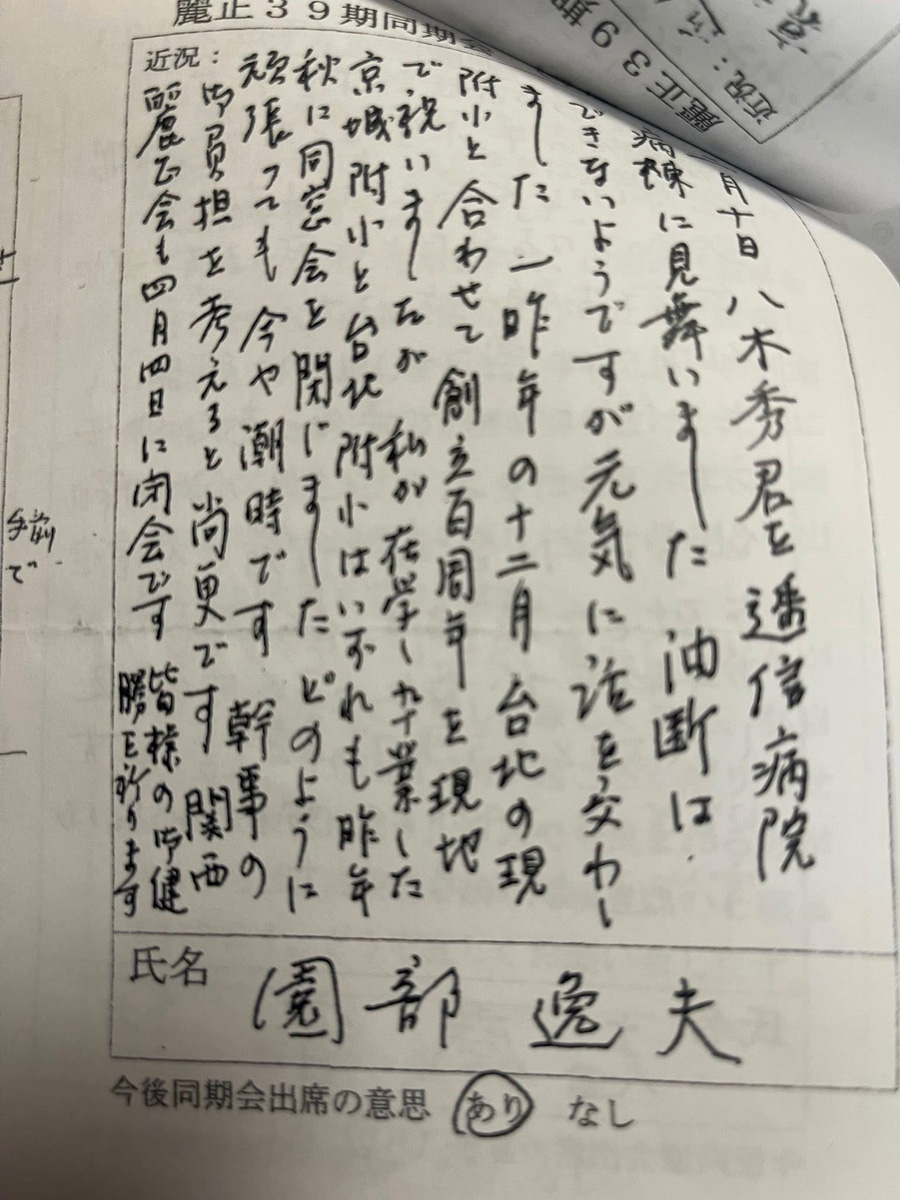 麗正39期同期会
近況：
月十日 八木秀君を逓信病院
病棟に見舞いました 油断は
できないようですが元気に話を交わし
ました 一昨年の十二月台北の現
附小と合わせて創立百周年を現地
で祝いましたが 私が在学し卒業した
京城附小と台北附小はいずれも昨年
秋に同窓会を閉じました どのように
頑張っても今や潮時です 幹事の
御負担を考えると尚更です 関西
麗正会も四月四日に閉会です 皆様の御健
勝を祈ります
氏名 園部 逸夫
今後同期会出席の意思 あり なし
麗正39期
近況：
で